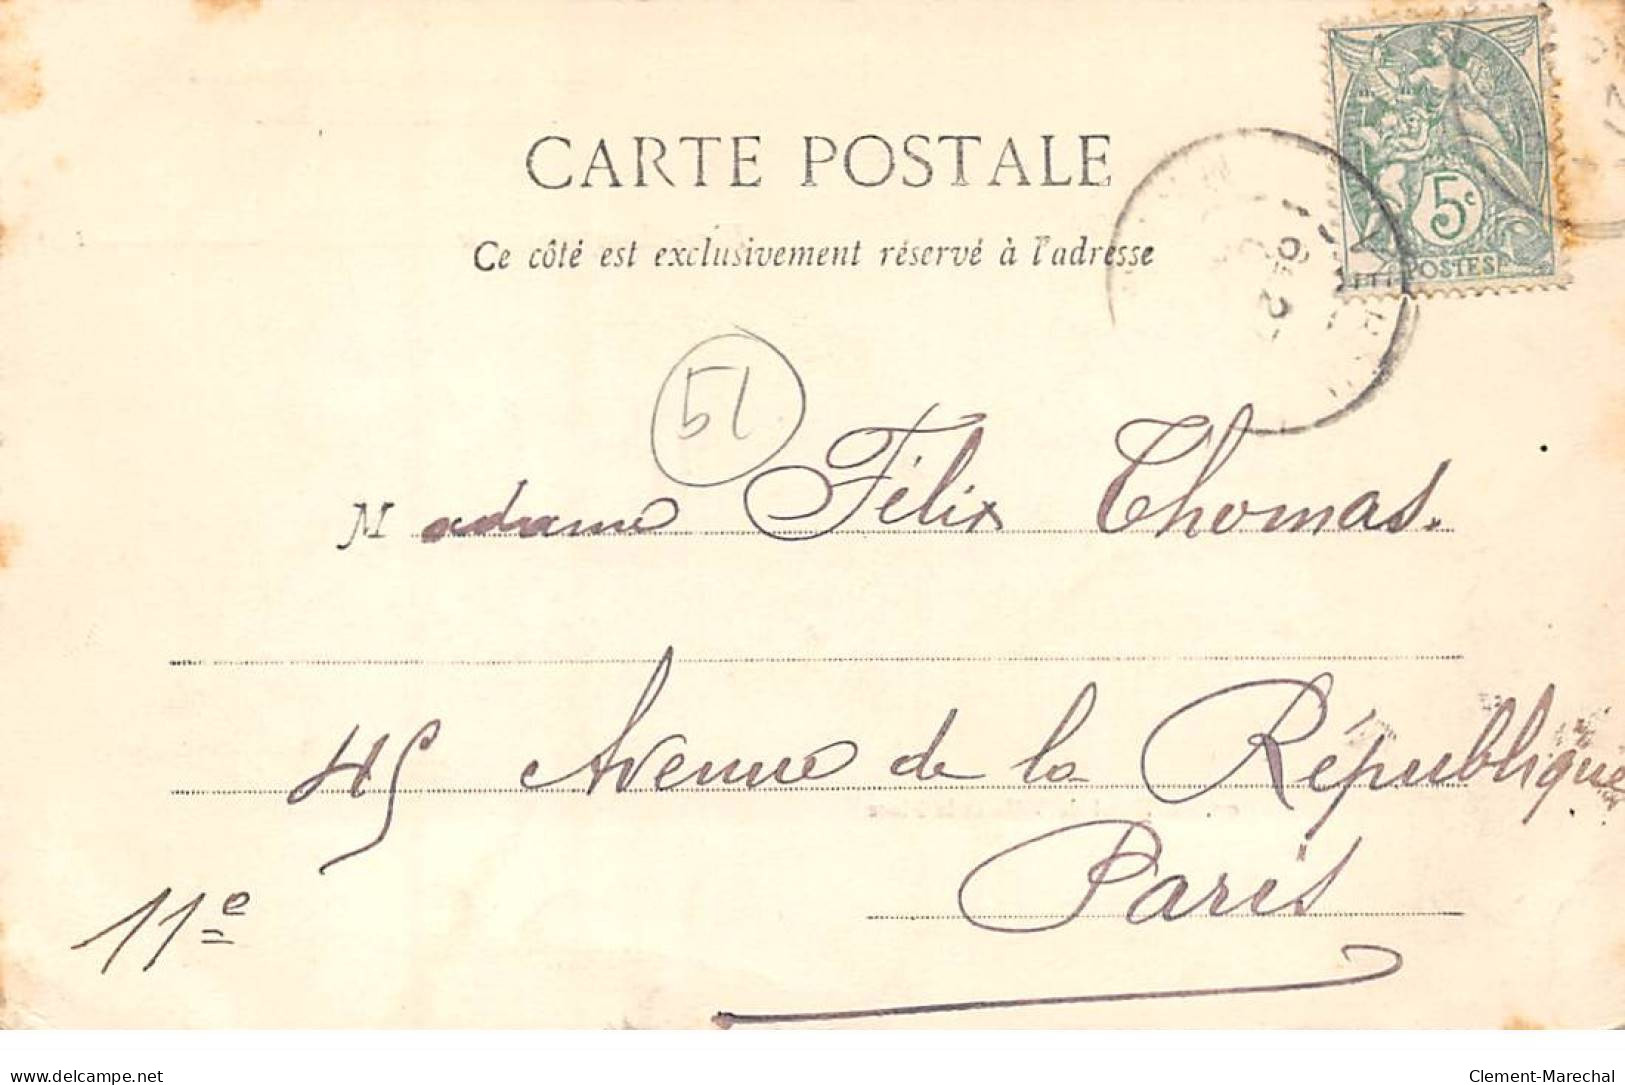 CARTE POSTALE
Ce côté est exclusivement réservé à l'adresse
5c
POSTES
51
Madame Félix Thomas.
45 Avenue de la République
Paris
11e
delcampe.net
Clement-Marechal